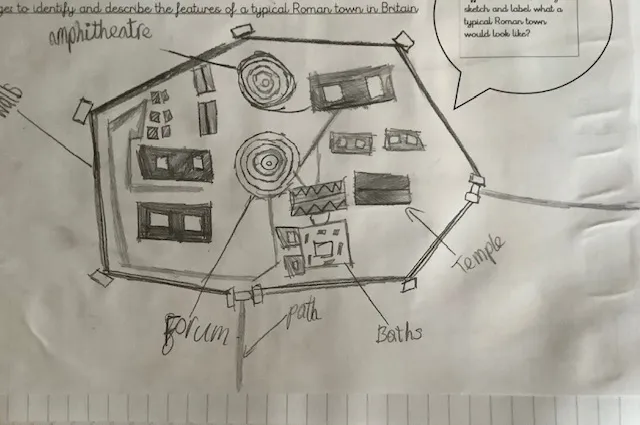 ges to identify and describe the features of a typical Roman town in Britain
sketch and label what a
typical Roman town
would look like?
amphitheatre
Temple
Forum
path
Baths